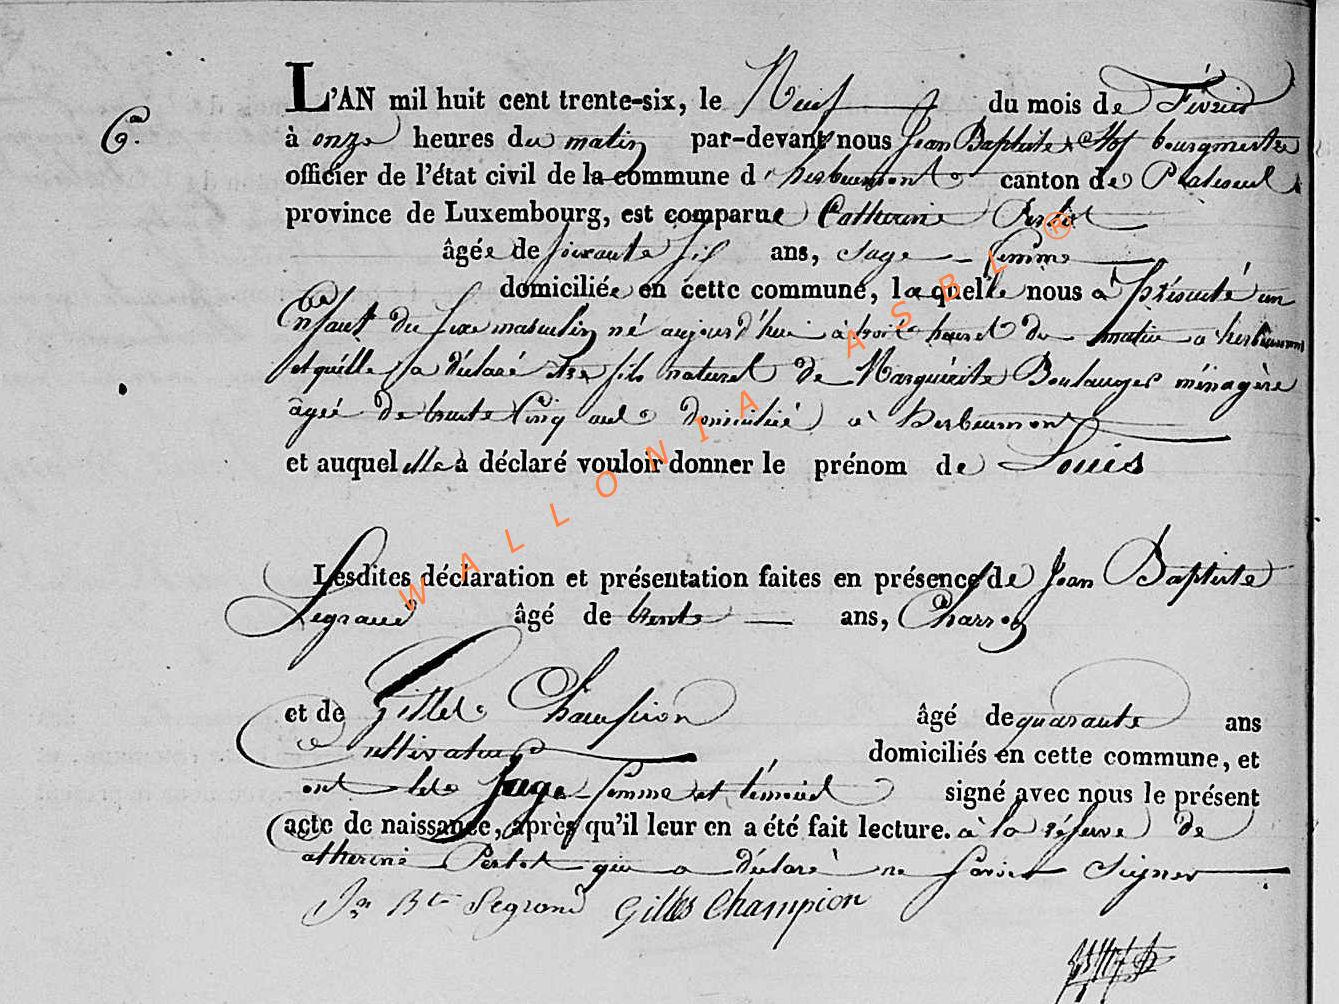 6.
L'AN mil huit cent trente-six, le Neuf du mois de Février
à onze heures du matin par-devant nous Jean Baptiste bourgmestre
officier de l'état civil de la commune d'herbeumont canton de Paliseul
province de Luxembourg, est comparue Catherine Perlot
âgée de soixante six ans, sage-femme
domiciliée en cette commune, laquelle nous à présenté un
Enfant du sexe masculin né aujourd'hui à trois heures du matin a herbeumont
et qu'elle a déclaré être fils naturel de Marguérite Boulanger ménagère
âgée de trente Cinq ans domiciliée à herbeumont
et auquel elle à déclaré vouloir donner le prénom de Louis
Lesdites déclaration et présentation faites en présence de Jean Baptiste
Legrand âgé de trente ans, Charron
et de Gilles Champion âgé de quarante ans
Cultivateur domiciliés en cette commune, et
ont les Sage-femme et témoins signé avec nous le présent
acte de naissance, après qu'il leur en a été fait lecture. à la réserve de
Catherine Perlot qui a déclaré ne savoir signer
Jn Bte Legrand Gilles Champion
WALLONIA ASBL ®